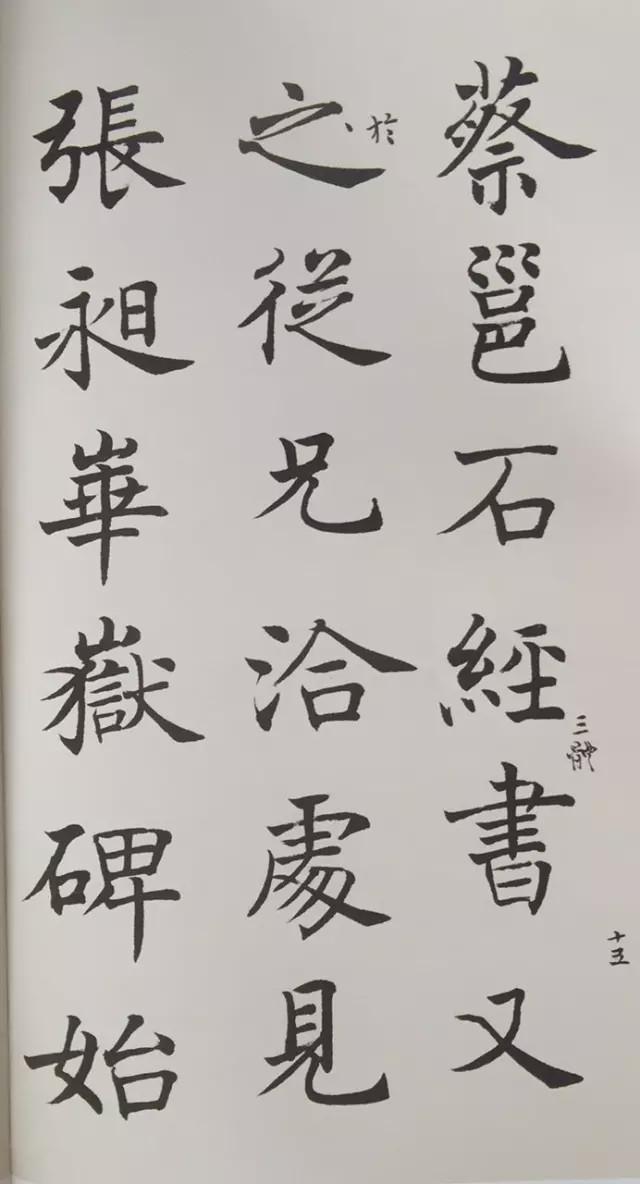 蔡邕石經書又
三體
十五
之從兄洽處見
於
張昶崋嶽碑始